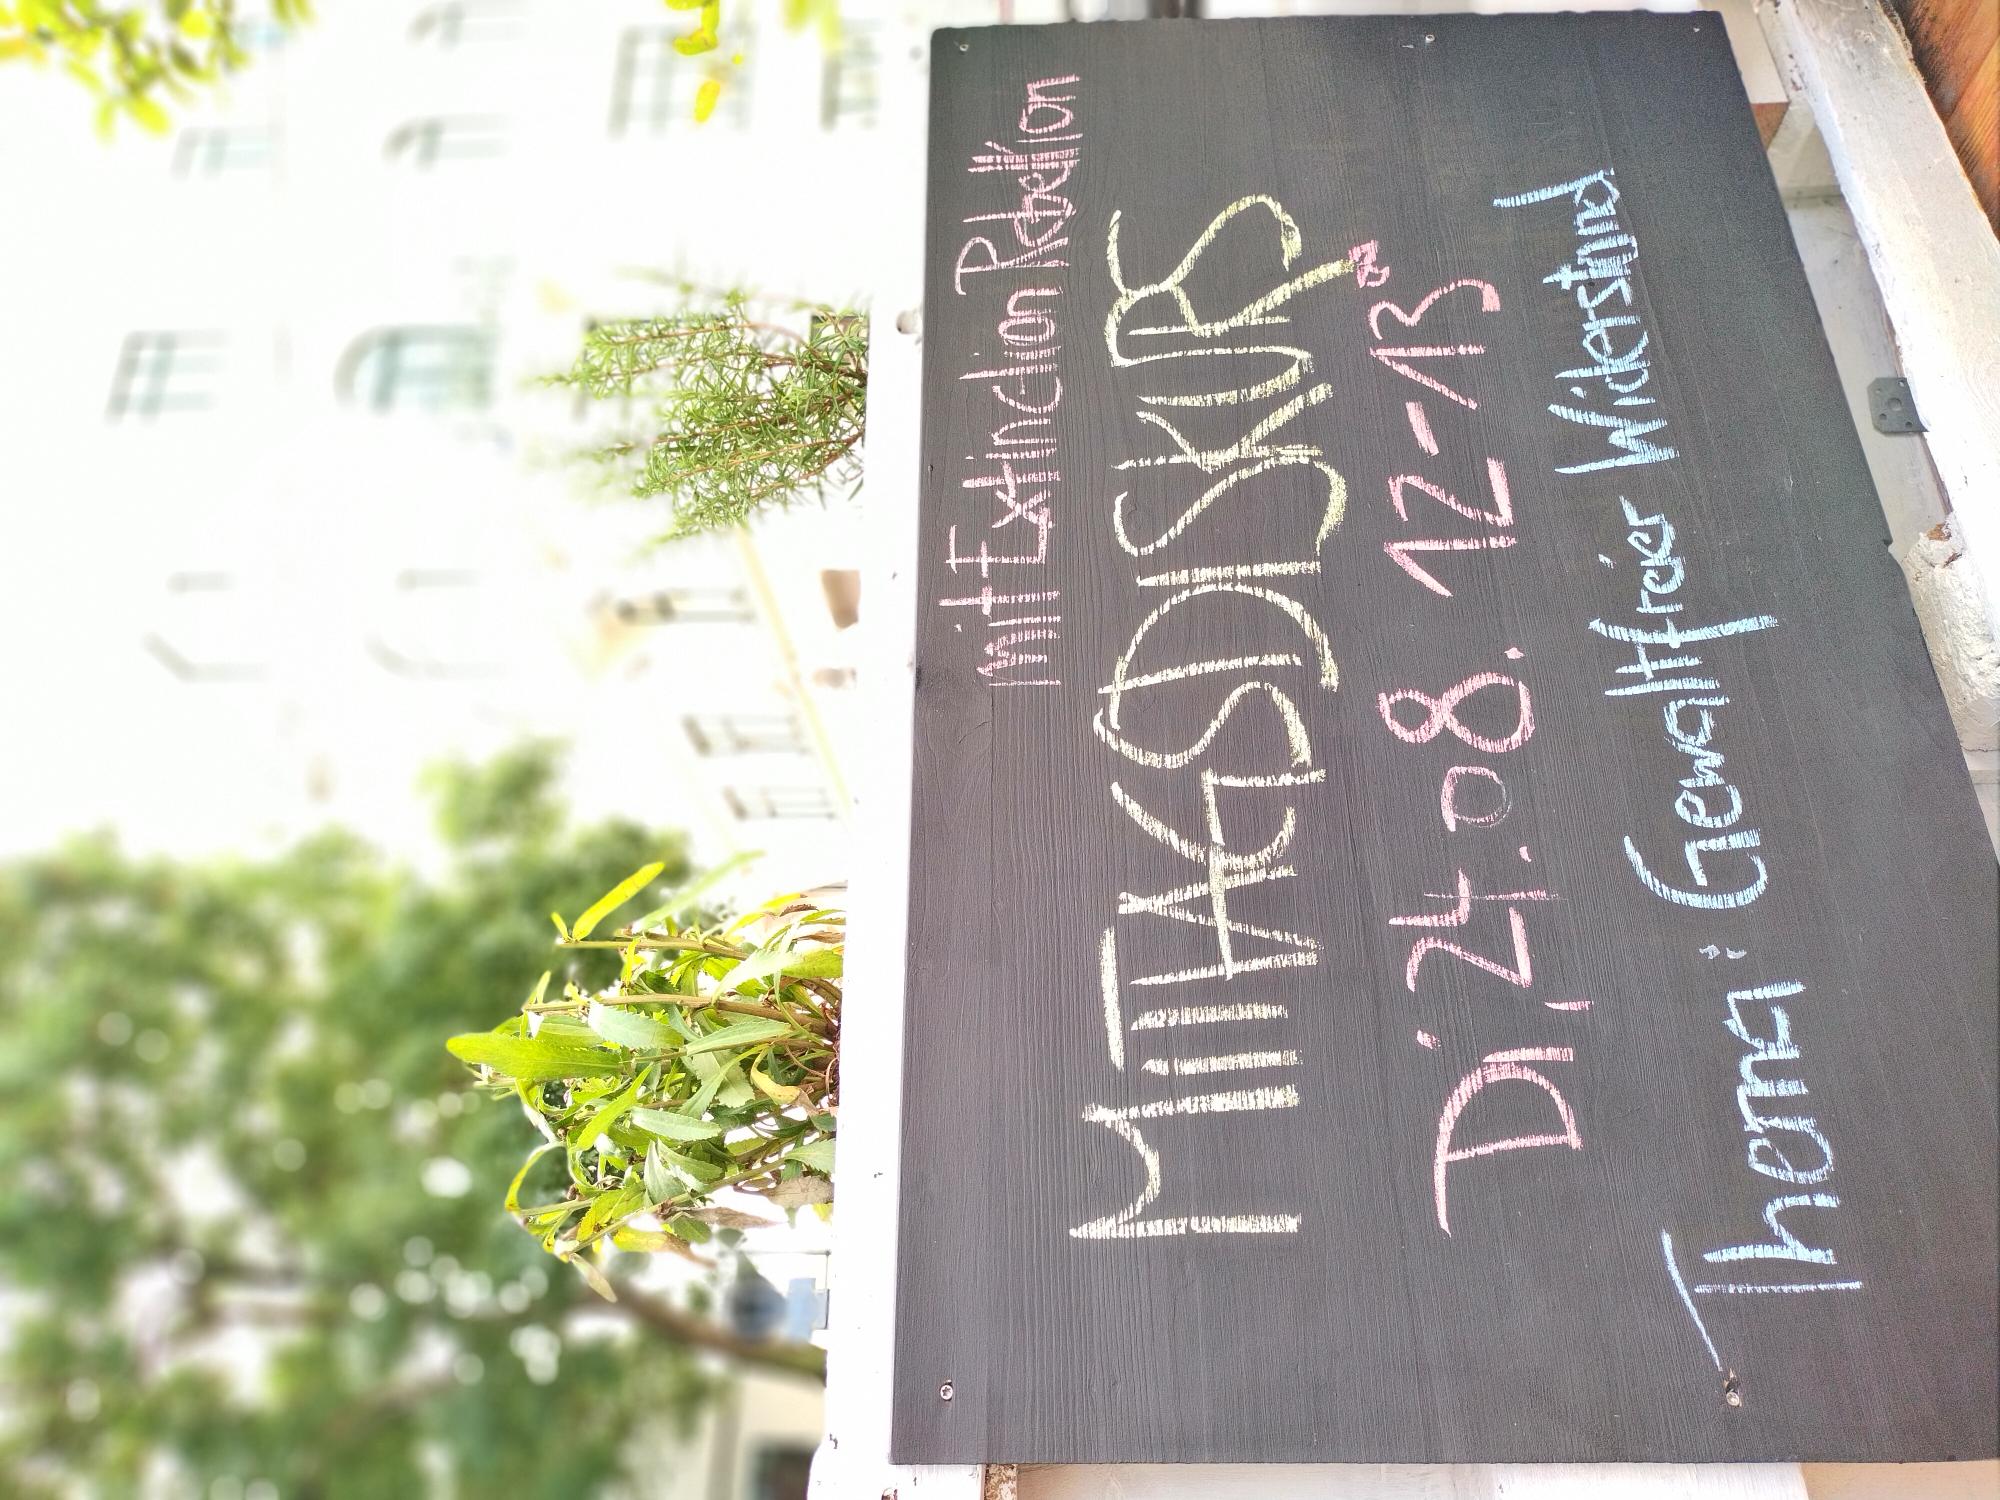 mit Extinction Rebellion
MITTAGSDISKURS
Di, 24.08. 12-13°°
Thema: Gewaltfreier Widerstand